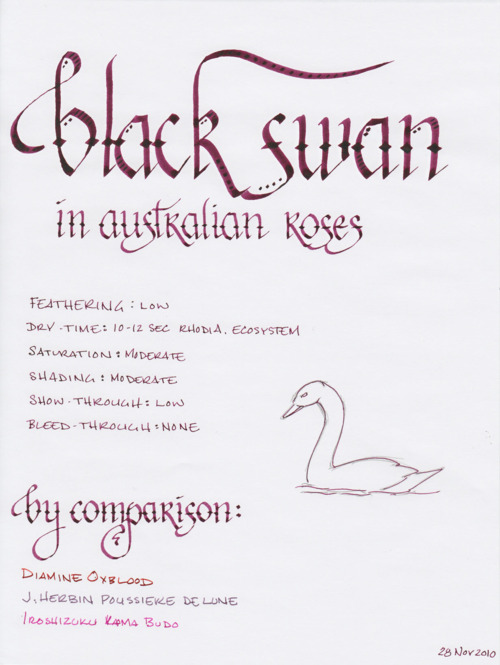 black swan
in australian roses
FEATHERING: LOW
DRY-TIME: 10-12 SEC RHODIA, ECOSYSTEM
SATURATION: MODERATE
SHADING: MODERATE
SHOW-THROUGH: LOW
BLEED-THROUGH: NONE
by comparison:
DIAMINE OXBLOOD
J. HERBIN POUSSIERE DE LUNE
IROSHIZUKU KAMA BUDO
28 NOV 2010